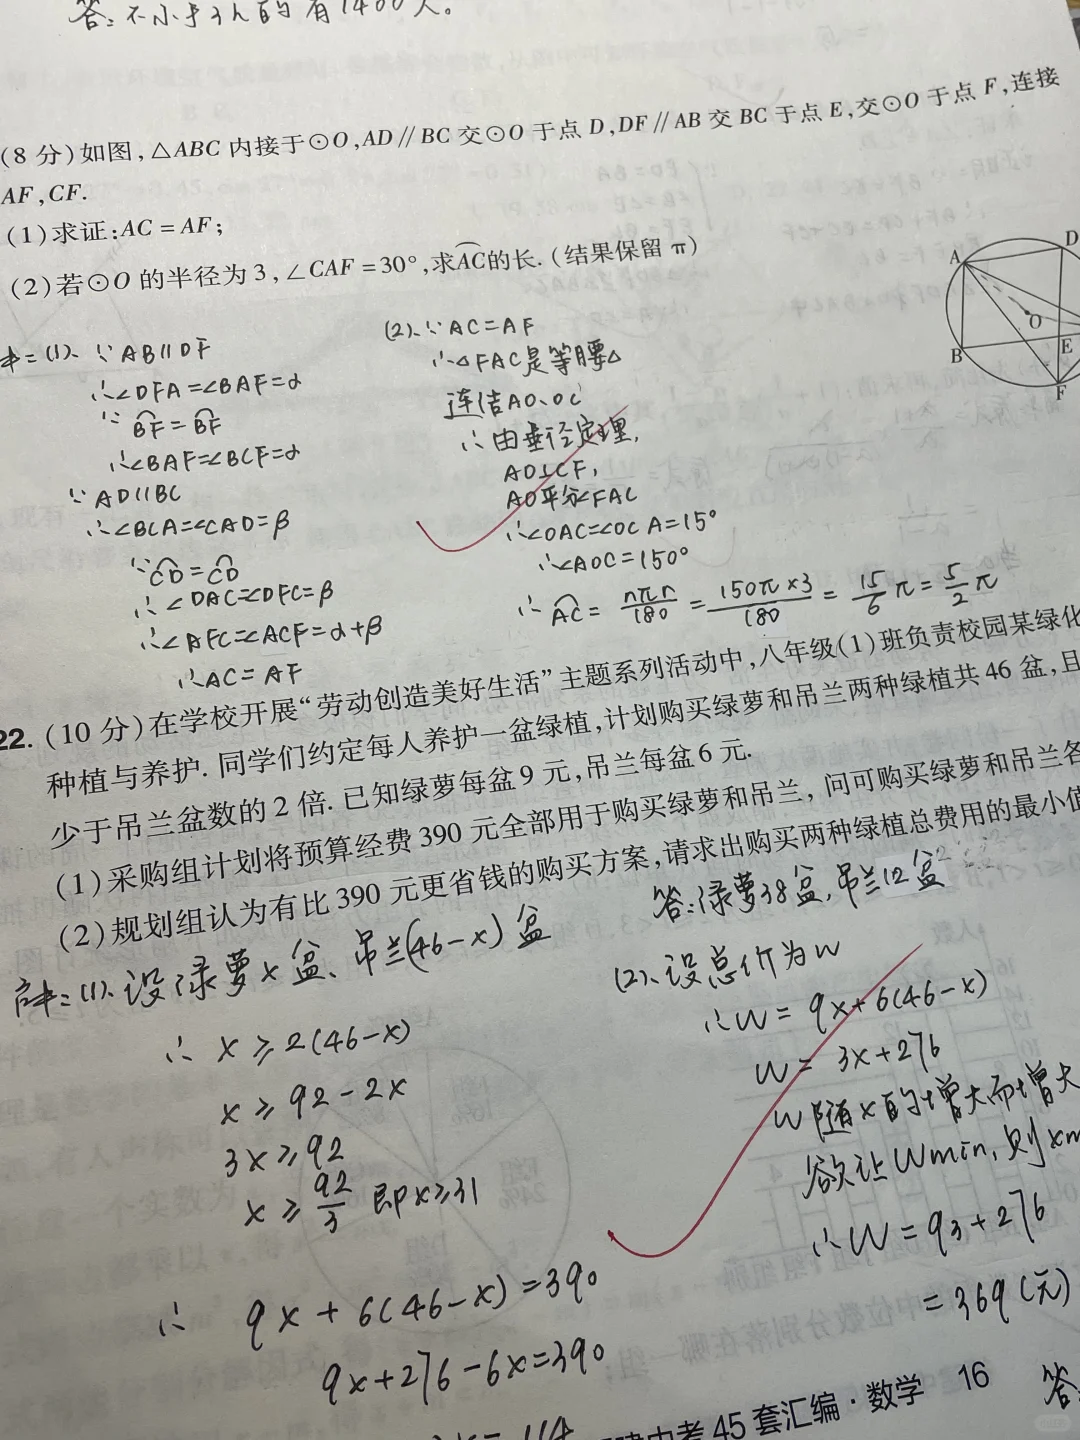 答:不小于3h的有1400人。
(8分)如图,△ABC内接于⊙O,AD∥BC交⊙O于点D,DF∥AB交BC于点E,交⊙O于点F,连接
AF,CF.
(1)求证:AC=AF;
(2)若⊙O的半径为3,∠CAF=30°,求AC的长.(结果保留π)
A
D
O
B
E
F
(1)、∵AB∥DF
∴∠DFA=∠BAF=α
∵BF=BF
∴∠BAF=∠BCF=α
∵AD∥BC
∴∠BCA=∠CAD=β
∵CD=CD
∴∠DAC=∠DFC=β
∴∠AFC=∠ACF=α+β
∴AC=AF
(2)、∵AC=AF
∴△FAC是等腰△
连结AO、OC
∴由垂径定理,
AO⊥CF,
AO平分∠FAC
∴∠OAC=∠OCA=15°
∴∠AOC=150°
∴AC=nπr/180=150π×3/180=15/6π=5/2π
22.(10分)在学校开展“劳动创造美好生活”主题系列活动中,八年级(1)班负责校园某绿化
种植与养护.同学们约定每人养护一盆绿植,计划购买绿萝和吊兰两种绿植共46盆,且
少于吊兰盆数的2倍.已知绿萝每盆9元,吊兰每盆6元.
(1)采购组计划将预算经费390元全部用于购买绿萝和吊兰,问可购买绿萝和吊兰各
(2)规划组认为有比390元更省钱的购买方案,请求出购买两种绿植总费用的最小值
答:绿萝38盆,吊兰12盆
解:(1)、设绿萝x盆、吊兰(46-x)盆
∴x≥2(46-x)
x≥92-2x
3x≥92
x≥92/3 即x≥31
∴9x+6(46-x)=390
9x+276-6x=390
(2)、设总价为w
∴W=9x+6(46-x)
W=3x+276
W随x的增大而增大
欲让Wmin,则xm
∴W=93+276
=369(元)
中考45套汇编·数学 16
答: